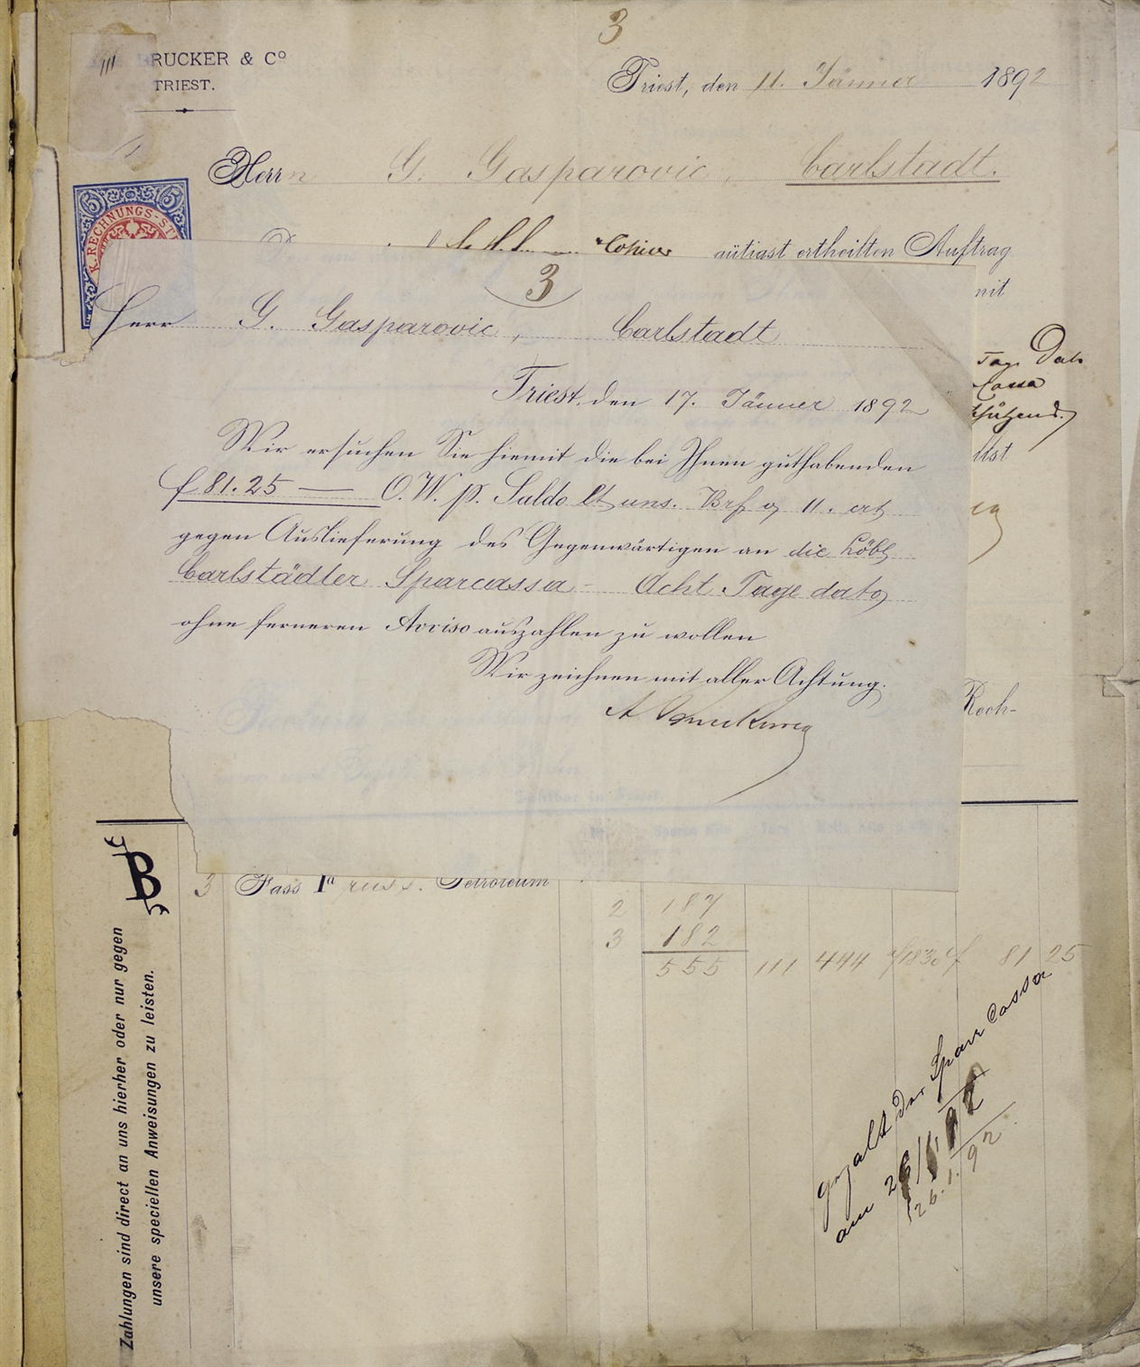 3
BRUCKER & Cº
TRIEST.
Triest, den 11. Jänner 1892
Herrn G. Gasparovic, Carlstadt.
5 5
K. RECHNUNGS-ST
gütigst ertheilten Auftrag
mit
3
Herr G. Gasparovic, Carlstadt
Tage Dato
Cassa
Triest, den 17. Jänner 1892
Wir ersuchen Sie hiemit die bei Ihnen guthabenden
f 81.25 — O.W. p. Saldo lt uns. Brf v 11. crt
gegen Auslieferung des Gegenwärtigen an die Löbl
Carlstädter Sparcassa - Acht Tage dato
ohne ferneren Avviso auszahlen zu wollen
Wir zeichnen mit aller Achtung.
Rech-
B
3 Fass Iª russ. Petroleum
2 187
3 182
555 111 444 81 25
gezalt der Sparr Cassa
am 26/1 92
26.1.92
Zahlungen sind direct an uns hierher oder nur gegen
unsere speciellen Anweisungen zu leisten.